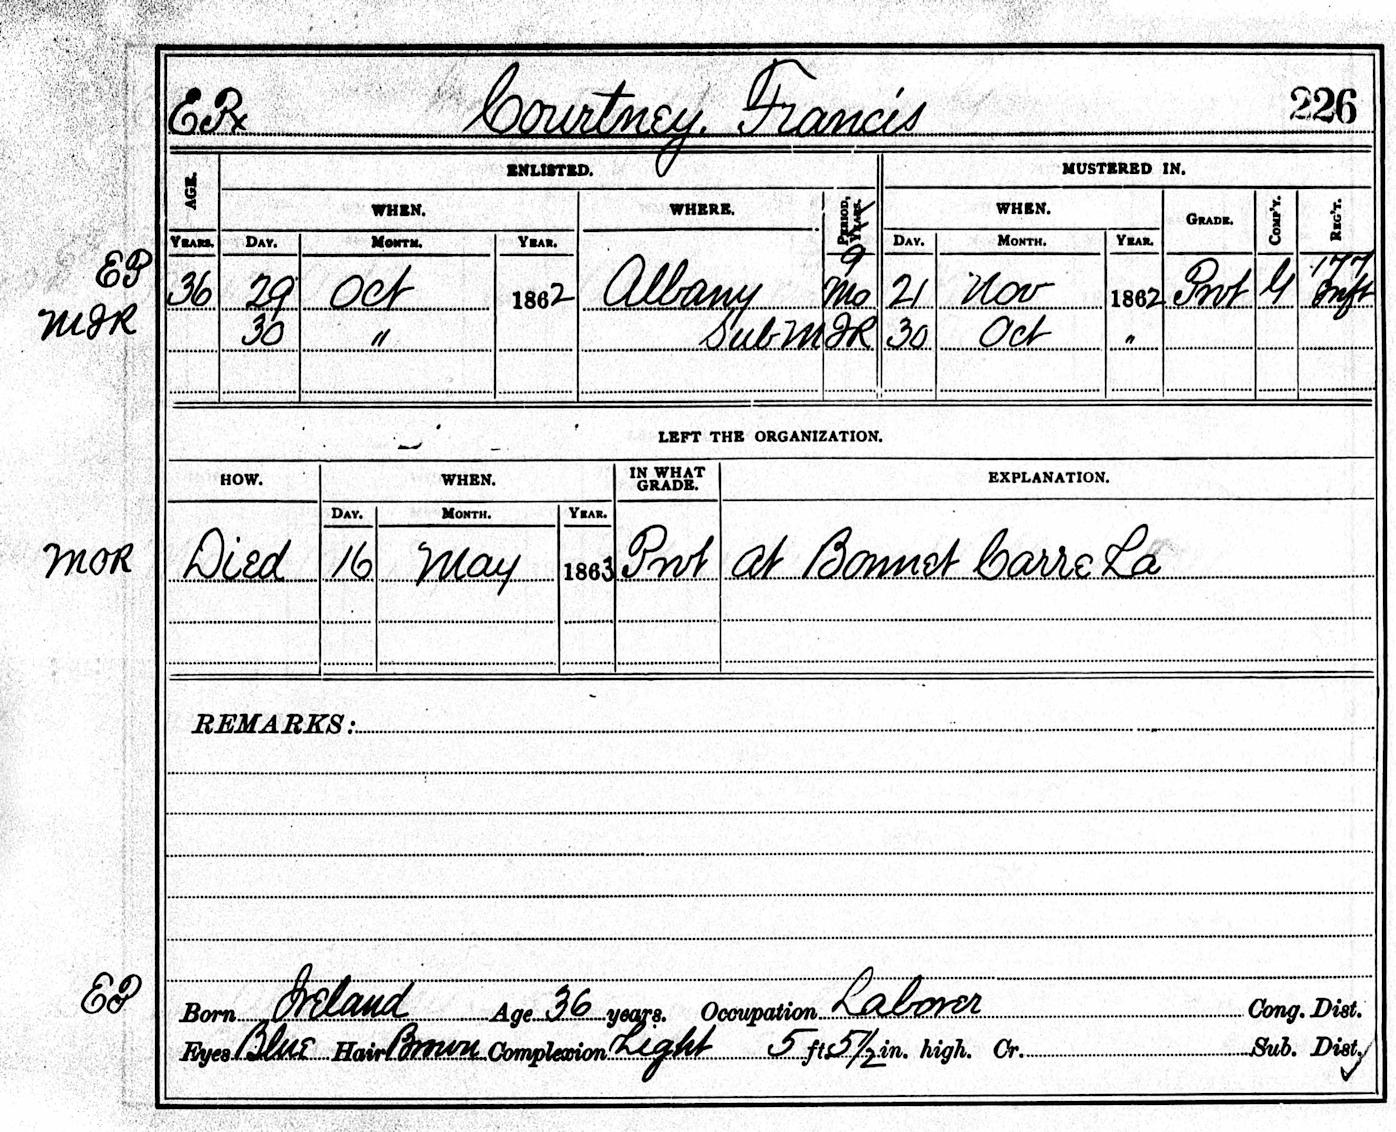 EPx Courtney, Francis 226
ENLISTED. MUSTERED IN.
AGE. WHEN. WHERE. PERIOD, YEARS. WHEN. GRADE. COMP'Y. REG'T.
YEARS. DAY. MONTH. YEAR. DAY. MONTH. YEAR.
EP 36 29 Oct 1862 Albany 9 Mo 21 Nov 1862 Pvt G 177 Inft
MIR 30 " Sub MIR 30 Oct "
LEFT THE ORGANIZATION.
HOW. WHEN. IN WHAT GRADE. EXPLANATION.
DAY. MONTH. YEAR.
MOR Died 16 May 1863 Pvt at Bonnet Carre La
REMARKS:
EP Born Ireland Age 36 years. Occupation Laborer Cong. Dist.
Eyes Blue Hair Brown Complexion Light 5 ft. 5½ in. high. Cr. Sub. Dist.